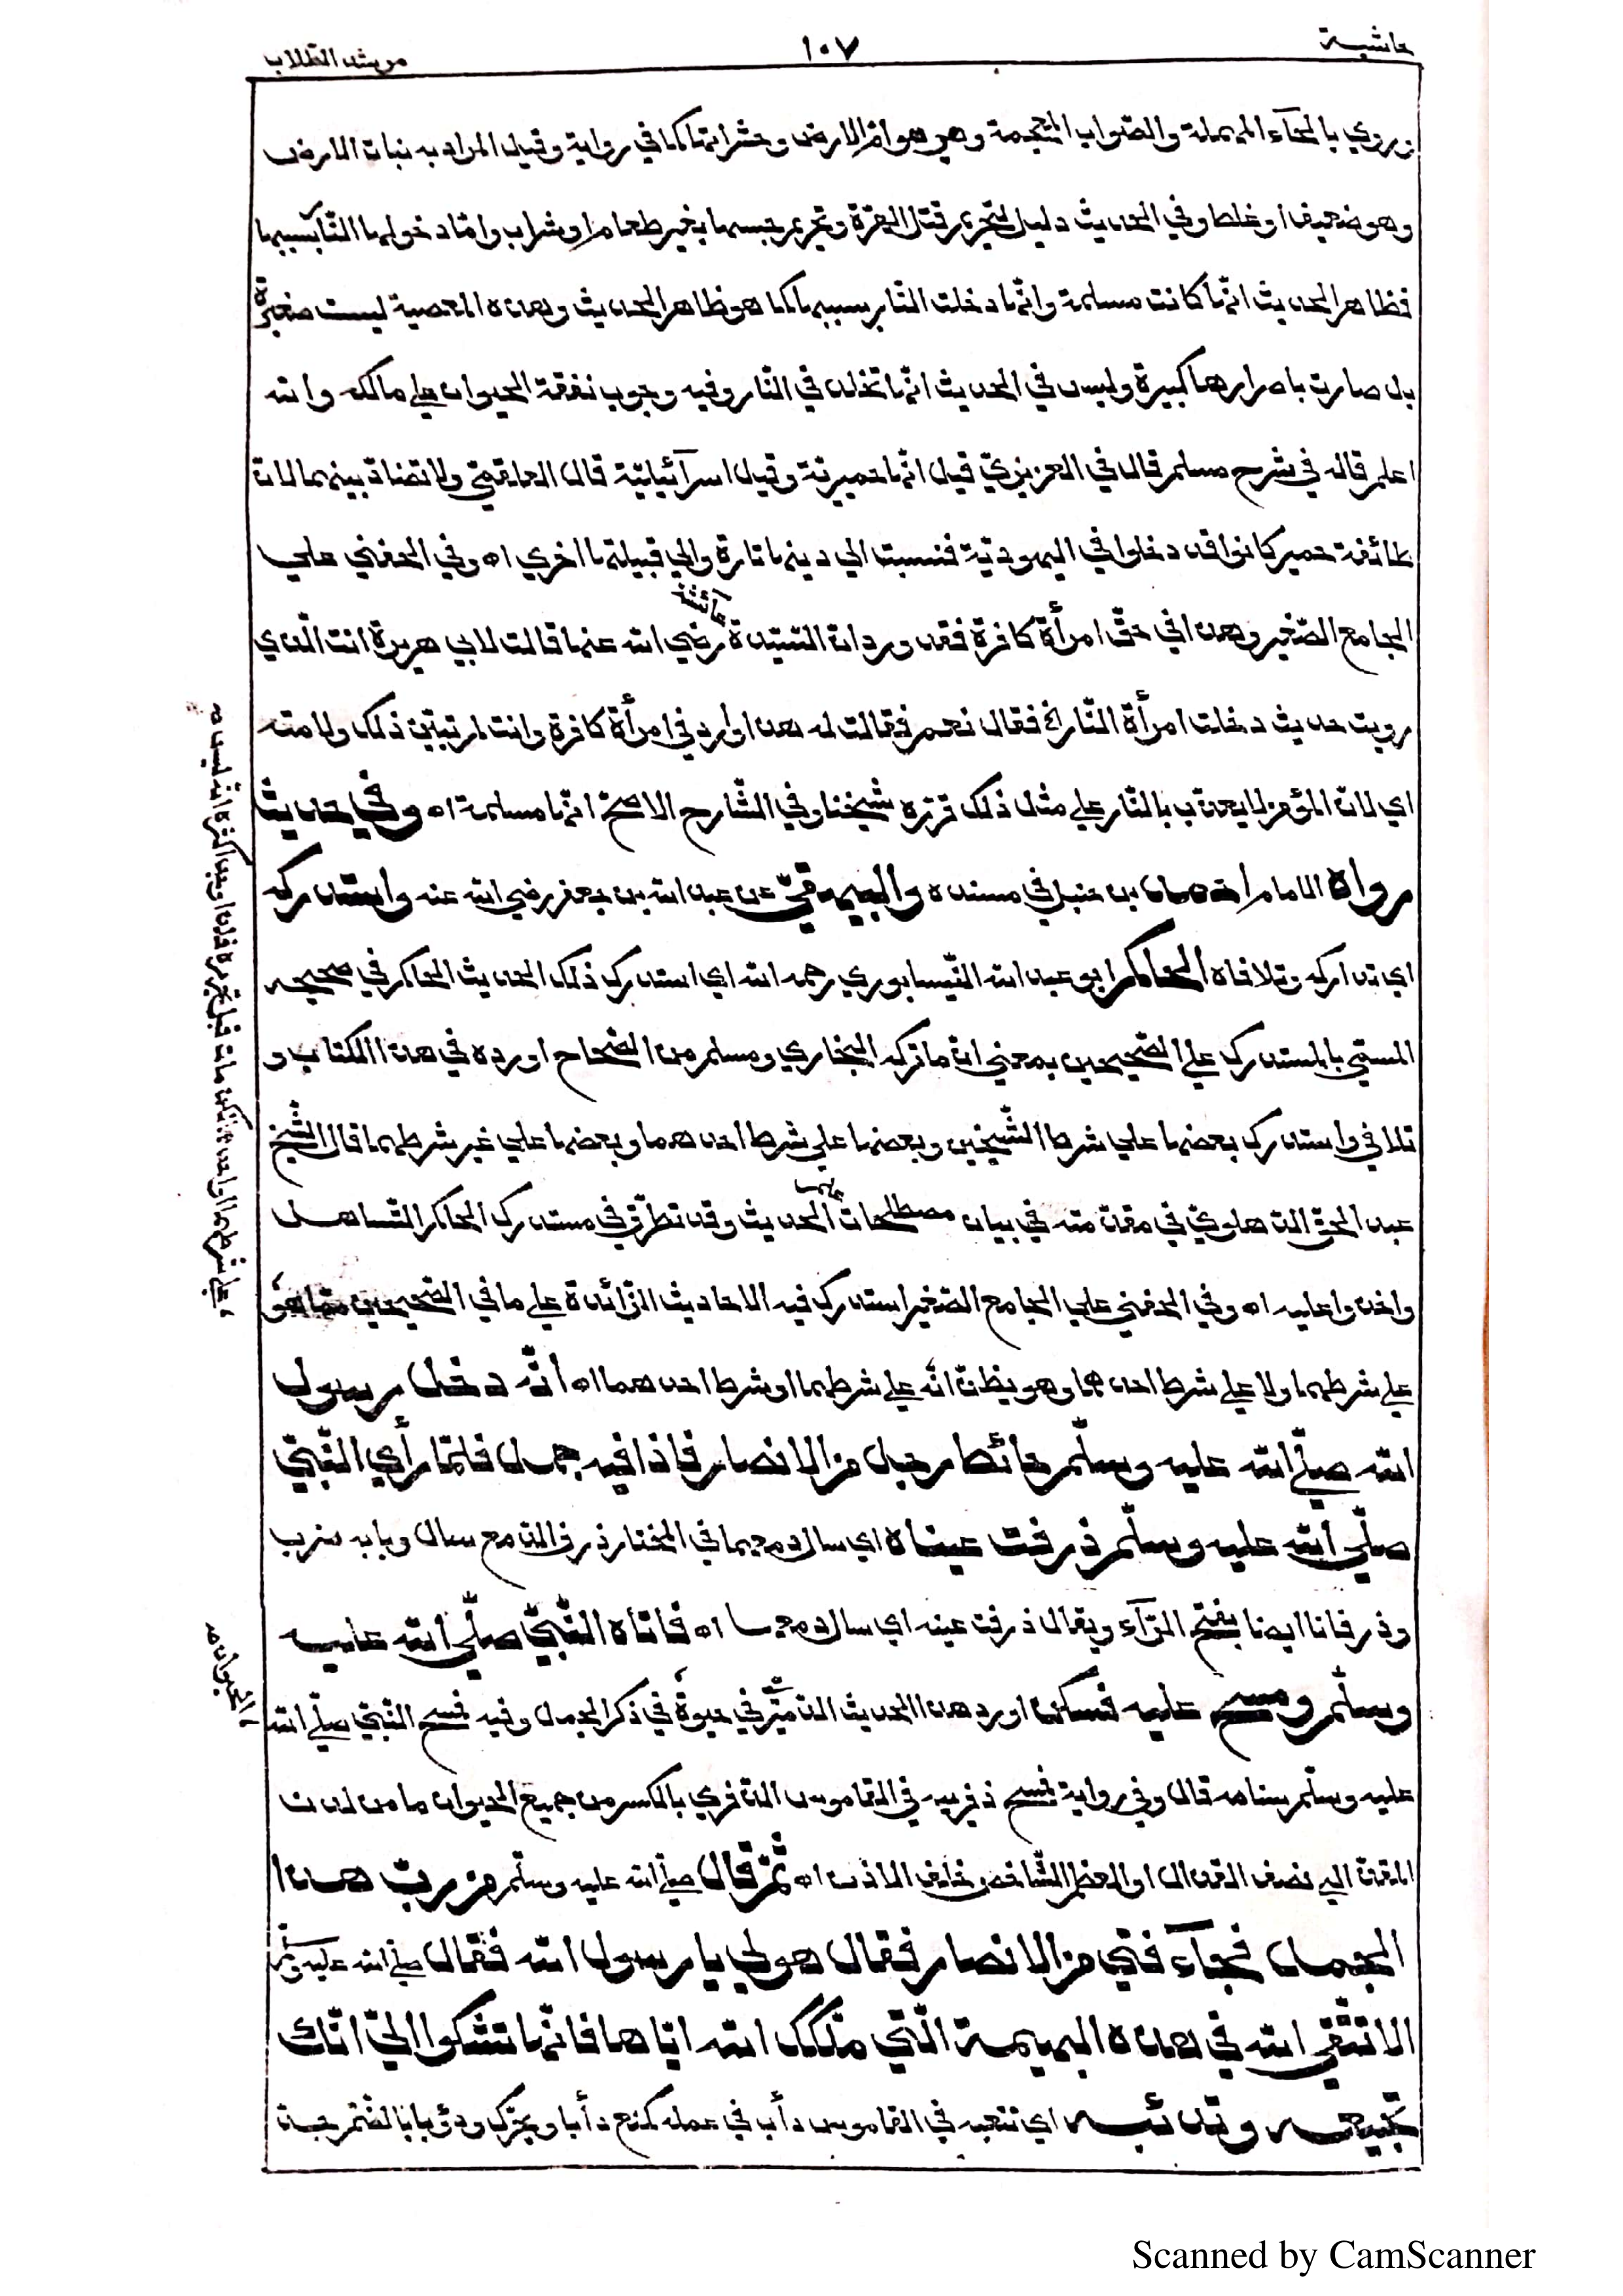 حاشية
١٠٧
مرشد الطلاب
وروي بالحاء المهملة والصواب المعجمة وهي هوام الارض وحشراتها كما في رواية وقيل المراد به نبات الارض
وهو ضعيف او غلط وفي الحديث دليل لتحريم قتل الهرة وتحريم حبسها بغير طعام او شراب وامّا دخولها النّار بسببها
فظاهر الحديث انّها كانت مسلمة وانّما دخلت النّار بسببها كما هو ظاهر الحديث وهذه المعصية ليست صغيرة
بل صارت باصرارها كبيرة وليس في الحديث انّها تخلد في النّار وفيه وجوب نفقة الحيوان علي مالكه والله
اعلم قاله في شرح مسلم قال في العزيزيّ قيل انّها حميريّة وقيل اسرآئيليّة قال العلقميّ ولا تضادّ بينهما لانّ
طائفة حمير كانوا قد دخلوا في اليهوديّة فنسبت الي دينها تارة والي قبيلتها اخري اه وفي الحفني علي
الجامع الصّغير وهذا في حقّ امرأة كافرة فقد ورد انّ السّيّدة عآئشة رضي الله عنها قالت لابي هريرة انت الّذي
رويت حديث دخلت امرأة النّار الخ فقال نعم فقالت له هذا وارد في امرأة كافرة وانت لم تبيّن ذلك ولامته
اي لانّ المؤمن لا يعذّب بالنّار علي مثل ذلك قرّره شيخنا وفي الشّارح الاصحّ انّها مسلمة اه وفي حديث
رواه الامام احمد بن حنبل في مسنده والبيهقيّ عن عبد الله بن جعفر رضي الله عنه واستدركه
اي تداركه وتلافاه الحاكم ابو عبد الله النّيسابوري رحمه الله اي استدرك ذلك الحديث الحاكم في صحيحه
المسمّي بالمستدرك علي الصّحيحين بمعني انّ ما تركه البخاري ومسلم من الصّحاح اورده في هذا الكتاب و
تلافي واستدرك بعضها علي شرط الشّيخين وبعضها علي شرط احدهما وبعضها علي غير شرطهما قال الشّيخ
عبد الحقّ الدّهلويّ في مقدّمته في بيان مصطلحات علم الحديث وقد تطرّق في مستدرك الحاكم التّساهل
واخذوا عليه اه وفي الحفني علي الجامع الصّغير استدرك فيه الاحاديث الزّآئدة علي ما في الصّحيحين ممّا هو
علي شرطهما ولا علي شرط احدهما وهو يظنّ انّه علي شرطهما او شرط احدهما اه انّه دخل رسول
الله صلّي الله عليه وسلّم حائط رجل من الانصار فاذا فيه جمل فلمّا رأي النّبيّ
صلّي الله عليه وسلّم ذرفت عيناه اي سال دمعهما في المختار ذرف الدّمع سال وبابه ضرب
وذرفانا ايضا بفتح الرّآء ويقال ذرفت عينه اي سال دمعها اه فاتاه النّبيّ صلّي الله عليه
وسلّم ومسح عليه فسكن اورد هذا الحديث الدّميريّ في حيوة في ذكر الجمل وفيه فمسح النّبيّ صلّي الله
عليه وسلّم سنامه قال وفي رواية فمسح ذفريه في القاموس الذّفري بالكسر من جميع الحيوان ما من لدن
المقذّ الي نصف القذال او العظم الشّاخص خلف الاذن اه ثمّ قال صلّي الله عليه وسلّم من ربّ هذا
الجمل فجآء فتي من الانصار فقال هو لي يا رسول الله فقال صلّي الله عليه وسلّم
الا تتّقي الله في هذه البهيمة الّتي ملّكك الله ايّاها فانّها تشكوا اليّ انّك
تجيعه وتدئبه اي تتعبه في القاموس دأب في عمله كمنع دأبا ويحرّك ودؤوبا بالضّمّ جدّ
الحيوان